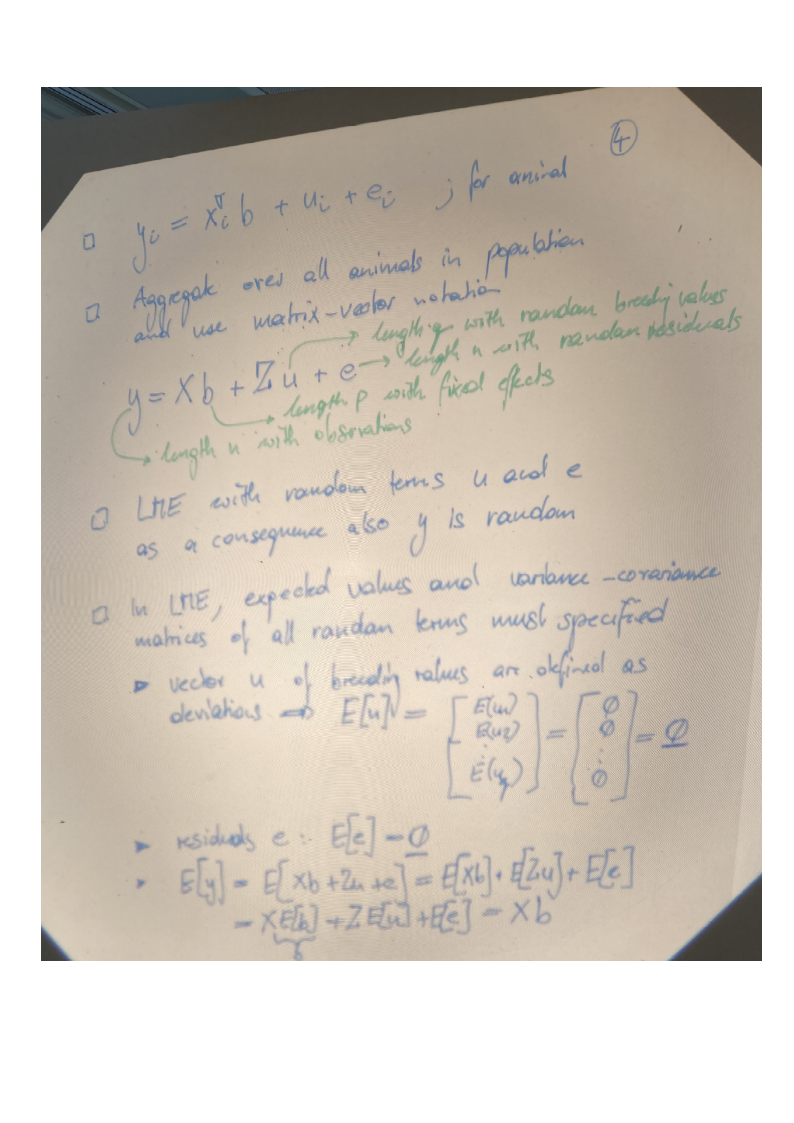 ④
□ yᵢ = xᵢᵀ b + uᵢ + eᵢ ; for animal
□ Aggregate over all animals in population
and use matrix-vector notation
→ length q with random breeding values
y = Xb + Zu + e → length n with random residuals
→ length p with fixed effects
→ length n with observations
□ LME with random terms u and e
as a consequence also y is random
□ In LME, expected values and variance-covariance
matrices of all random terms must specified
► vector u of breeding values are defined as
deviations ⇒ E[u] = [E(u1) E(u2) ⋮ E(uq)] = [0 0 ⋮ 0] = 0
► residuals e : E[e] = 0
► E[y] = E[Xb + Zu + e] = E[Xb] + E[Zu] + E[e]
= XE[b] + ZE[u] + E[e] = Xb
b